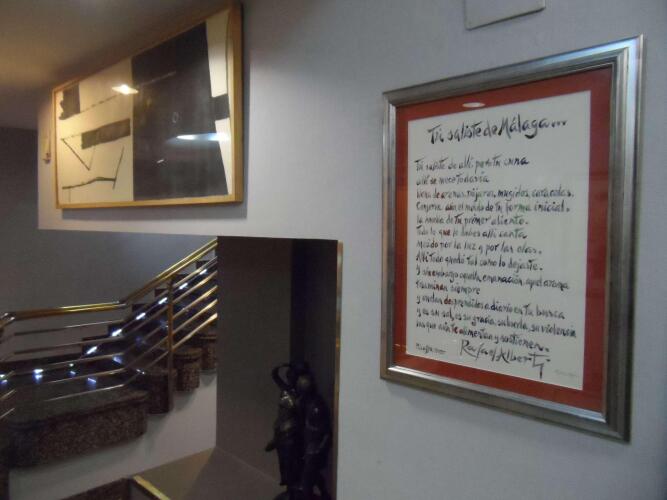 Tú saliste de Málaga...
Tú saliste de allí, pero tu cuna
allí se mece todavía
llena de arenas, pájaros, mugidos, caracolas.
Conserva aún el molde de tu forma inicial,
la huella de tu primer aliento.
Todo lo que le debes allí canta
mecido por la luz y por las olas.
Allí todo quedó tal como lo dejaste.
Y sin embargo aquella emanación, aquel aroma
caminan siempre
y andan desprendidos a diario en tu busca
y es su sol, es su gracia, su burla, su violencia
los que aún te alimentan y sostienen.
Rafael Alberti